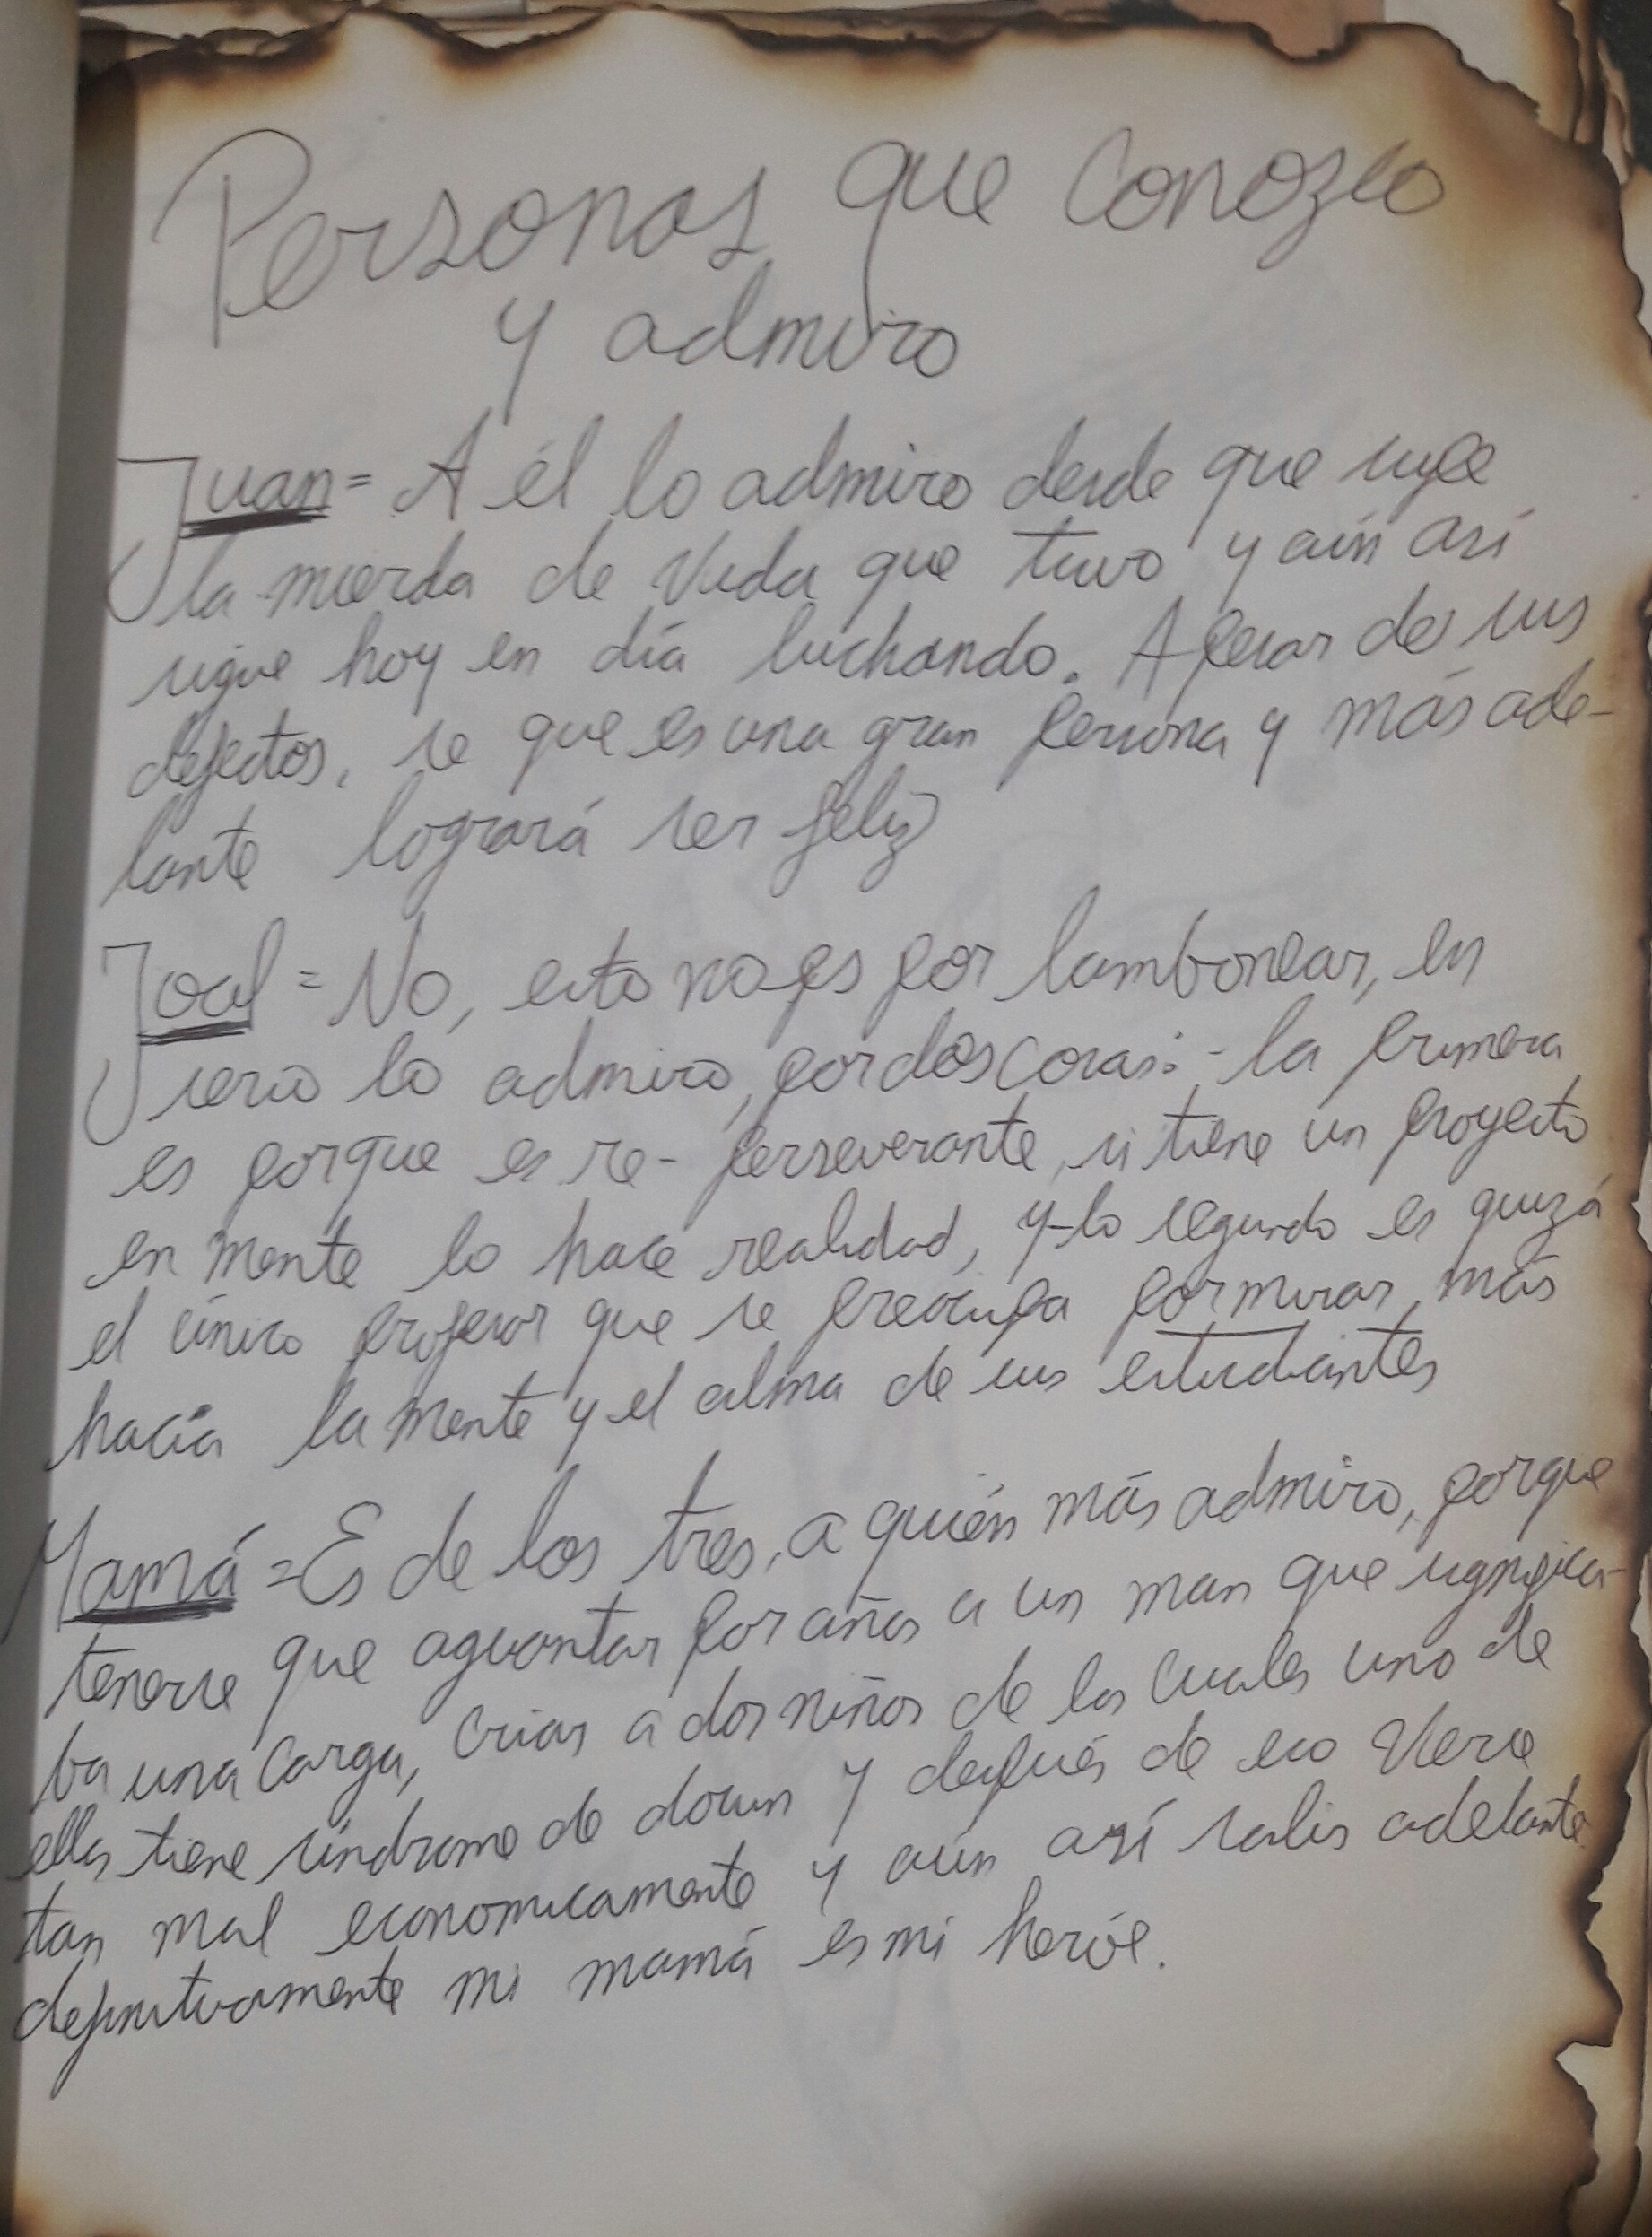 Personas que conozco
y admiro
Juan = A él lo admiro desde que supe
la mierda de vida que tuvo y aún así
sigue hoy en día luchando. A pesar de sus
defectos, se que es una gran persona y más ade-
lante logrará ser feliz
Joal = No, esto no es por lambonear, en
serio lo admiro, por dos cosas: - la primera
es porque es re- perseverante, si tiene un proyecto
en mente lo hace realidad, y-lo segundo es quizá
el único profesor que se preocupa por mirar más
hacia la mente y el alma de sus estudiantes
Mamá = Es de los tres, a quién más admiro, porque
tenerse que aguantar por años a un man que significa-
ba una carga, criar a dos niños de los cuales uno de
ellos tiene síndrome de down y después de eso verse
tan mal economicamente y aún así salir adelante
definitivamente mi mamá es mi heróe.